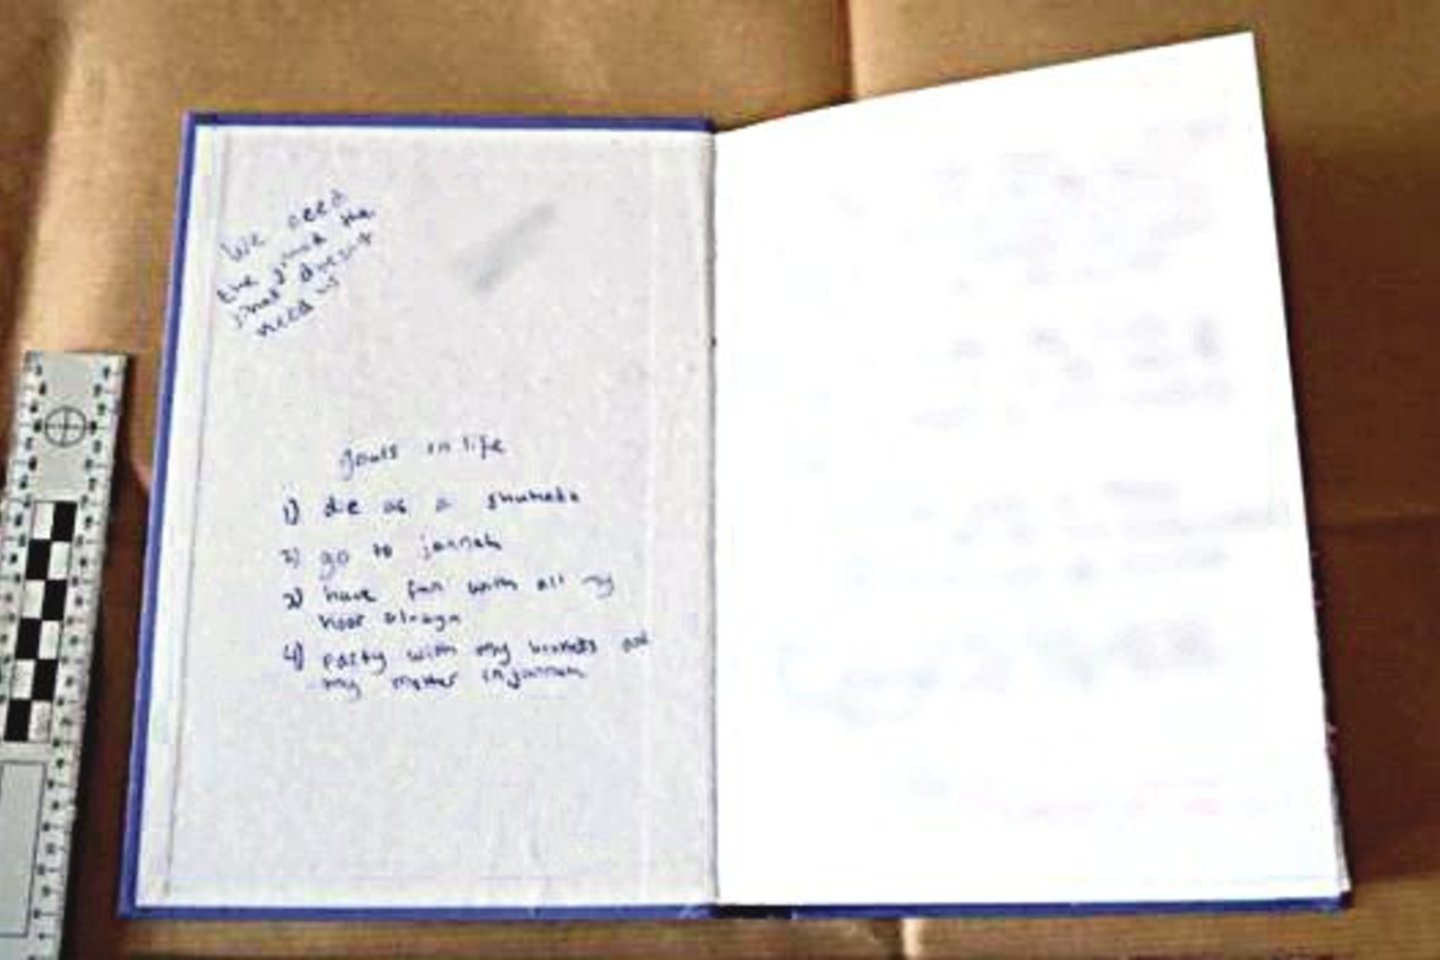 We need
the jihad the
jihad doesn't
need us
goals in life
1) die as a shuhada
2) go to jannah
3) have fun with all my
hoor
4) party with my brothers and
my mother in jannah